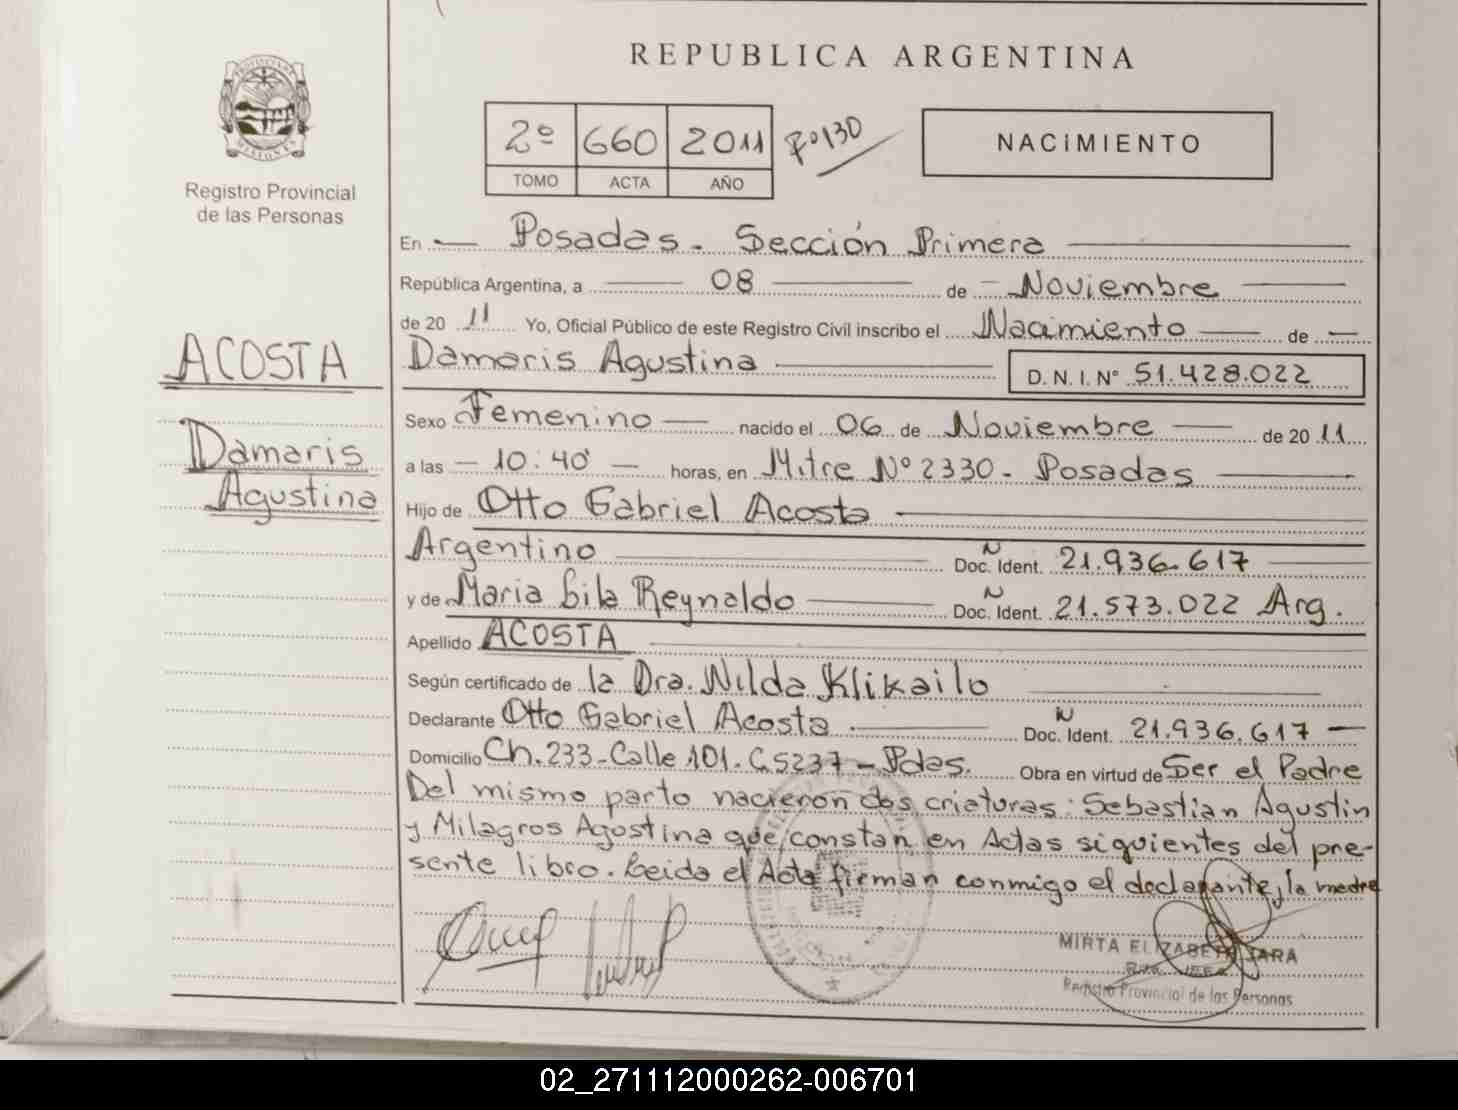 REPUBLICA ARGENTINA
PROVINCIA DE MISIONES
Registro Provincial
de las Personas
2º 660 2011 Fº130
TOMO ACTA AÑO
NACIMIENTO
En Posadas. Sección Primera
República Argentina, a 08 de Noviembre
de 20 11 Yo, Oficial Público de este Registro Civil inscribo el Nacimiento de
ACOSTA
Damaris Agustina D. N. I. Nº 51.428.022
Damaris
Agustina
Sexo Femenino nacido el 06 de Noviembre de 20 11
a las 10:40 horas, en Mitre Nº 2330 - Posadas
Hijo de Otto Gabriel Acosta
Argentino Doc. N Ident. 21.936.617
y de Maria Lila Reynaldo Doc. N Ident. 21.573.022 Arg.
Apellido ACOSTA
Según certificado de la Dra. Nilda Klikailo
Declarante Otto Gabriel Acosta Doc. N Ident. 21.936.617
Domicilio Ch. 233 - Calle 101. C.5237 - Pdas. Obra en virtud de Ser el Padre
Del mismo parto nacieron dos criaturas: Sebastian Agustin
y Milagros Agostina que constan en Actas siguientes del pre-
sente libro. Leida el Acta firman conmigo el declarante, la madre
MIRTA ELIZABETH JARA
Registro Provincial de las Personas
02_271112000262-006701